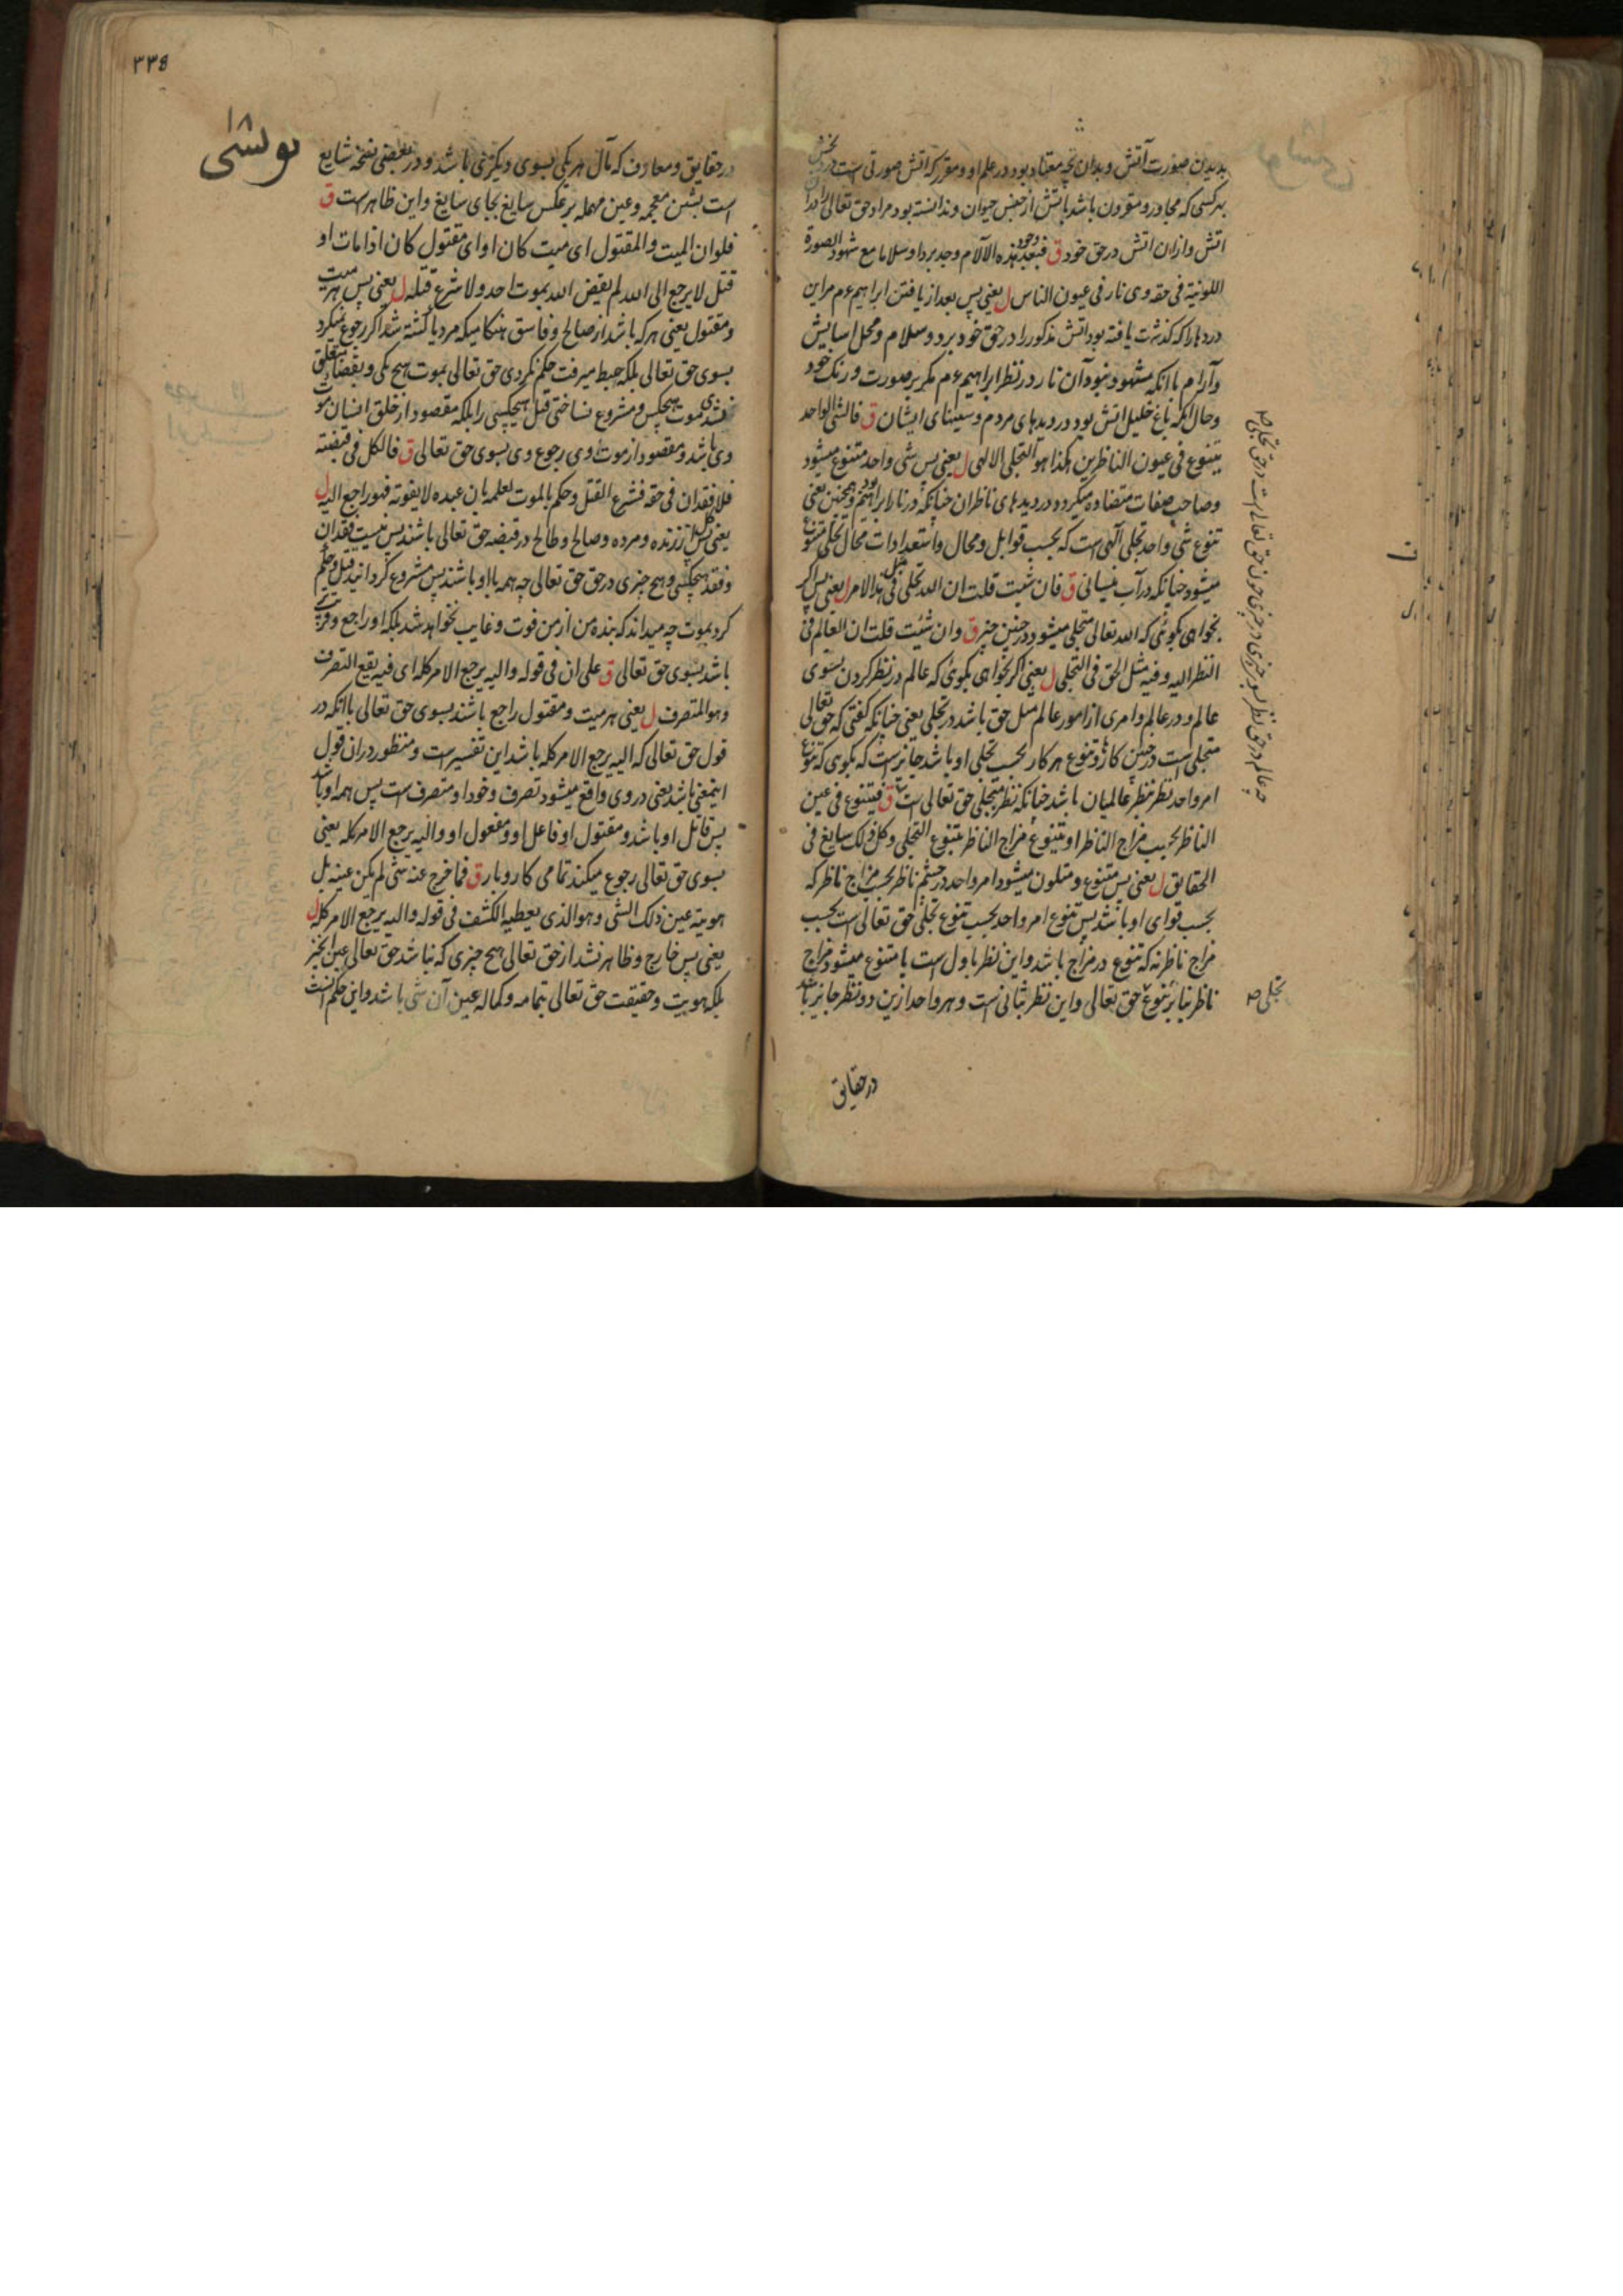 بدیدن صورت آتش و بدان نچه معتاد بود در علم او و مقرر که اتش صورتی است
بهر کسی که مجاور و مقرون باشد باتش از جنس حیوان و ندانسته بود مراد حق تعالی را از
اتش و ازان اتش در حق خود ق فبعد وجود هذه الآلام وجد بردا وسلاما مع شهود الصورة
اللونیة فی حقه وهی نار فی عیون الناس ل یعنی پس بعد از یافتن ابراهیم عم مر این
دردها را که کذشت یافته بود اتش مذکور را در حق خود برد و سلام و محل اسایش
وآرام با انکه مشهود نبود آن نار در نظر ابراهیم عم مکر بر صورت و رنک خود
وحال انکه باغ خلیل اتش بود در دیدهای مردم و سینهای ایشان ق فالشی الواحد
یتنوع فی عیون الناظرین هکذا هو التجلی الالهی ل یعنی پس شی واحد متنوع میشود
وصاحب صفات متضاده میکردد در دیدهای ناظران چنانکه در نار ابراهیم بود و همچنین یعنی
تنوع شی واحد تجلی الهی است که بحسب قوابل و محال و استعدادات محال تجلی متنوع
میشود چنانکه در آب نیسانی ق فان شئت قلت ان الله تجلی مثل هذا الامر ل یعنی پس اکر
بخواهی بکوئی که الله تعالی متجلی میشود در چنین چیز ق وان شئت قلت ان العالم فی
النظر الیه وفیه مثل الحق فی التجلی ل یعنی اکر بخواهی بکوئی که عالم در نظر کردن بسوی
عالم و در عالم و امری از امور عالم مثل حق باشد در تجلی یعنی چنانکه کفتی که حق تعالی
متجلی است در چنین کار و تنوع هر کار بحسب تجلی او باشد جایز است که بکوی که تنوع
امر واحد نظر بنظر عالمیان باشد چنانکه نظر متجلی حق تعالی است ق فیتنوع فی عین
الناظر بحسب مزاج الناظر او یتنوع مزاج الناظر بتنوع التجلی وکل ذلک سایغ فی
الحقایق ل یعنی پس متنوع و متلون میشود امر واحد در چشم ناظر بحسب مزاج ناظر که
بحسب قوای او باشد پس تنوع امر واحد بحسب تنوع تجلی حق تعالی است بحسب
مزاج ناظر نه که تنوع در مزاج باشد و این نظر باول است یا متنوع میشود مزاج
ناظر بنا بر تنوع حق تعالی و این نظر بثانی است و هر واحد ازین دو نظر جایز باشد
تجلی صح
در حقایق
٣٣٥
در حقایق و معارف که مآل هر یکی بسوی دیکری باشد و در بعضی نسخه شایع
است بشین معجمه و عین مهمله بر عکس سایغ بجای سایغ و این ظاهر است ق
فلو ان المیت والمقتول ای میت کان او ای مقتول کان اذا مات او
قتل لا یرجع الی الله لم یقض الله بموت احد ولا شرع قتله ل یعنی پس هر میت
ومقتول یعنی هر که باشد از صالح و فاسق هنکامیکه مرد یا کشته شد اکر رجوع نمیکرد
بسوی حق تعالی بلکه حبط میرفت حکم نکردی حق تعالی بموت هیچ یکی و بقضا متعلق
نشدی موت هیچکس و مشروع نساختی قتل هیچکسی را بلکه مقصود از خلق انسان موت
وی باشد و مقصود از موت وی رجوع وی بسوی حق تعالی ق فالکل فی قبضته
فلا فقدان فی حقه فشرع القتل وحکم بالموت لعلمه بان عبده لا یفوته فهو راجع الیه ل
یعنی پس کل از زنده و مرده و صالح و طالح در قبضه حق تعالی باشند پس نیست فقدان
وفقد هیچکسی و هیچ چیزی در حق حق تعالی چه همه با او باشند پس مشروع کردانید قتل و حکم
کرد بموت چه میداند که بنده من از من فوت و غایب نخواهد شد بلکه او راجع و
باشد بسوی حق تعالی ق علی ان فی قوله والیه یرجع الامر کله ای فیه یقع التصرف
وهو المتصرف ل یعنی هر میت و مقتول راجع باشند بسوی حق تعالی با انکه در
قول حق تعالی که الیه یرجع الامر کله باشد این تفسیر است و منظور در ان قول
اینمعنی باشد یعنی در وی واقع میشود تصرف و خود او متصرف است پس همه او باشد
پس قاتل او باشد و مقتول او فاعل او و مفعول او و الیه یرجع الامر کله یعنی
بسوی حق تعالی رجوع میکند تمامی کار و بار ق فما خرج عنه شی لم یکن عینه بل
هویته عین ذلک الشی وهو الذی یعطیه الکشف فی قوله والیه یرجع الامر کله ل
یعنی پس خارج و ظاهر نشد از حق تعالی هیچ چیزی که نباشد حق تعالی عین آنچیز
بلکه هویت و حقیقت حق تعالی بتمامه و کماله عین آن شی باشد و این حکم